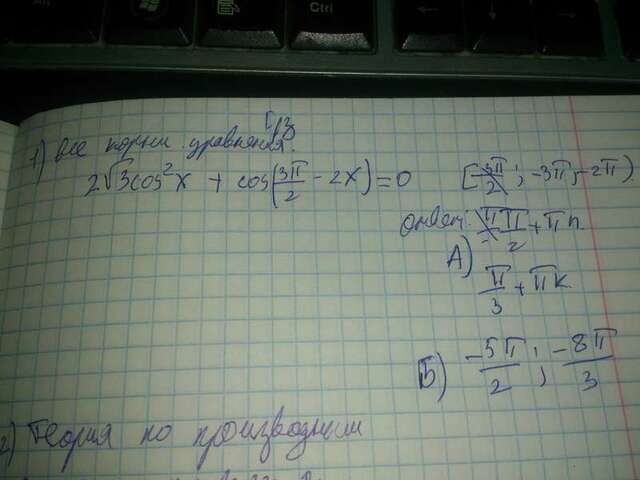 Alt
Ctrl
1) все корни уравнения.
2√3cos²x + cos(3π/2 - 2x) = 0 [-3π; -2π)
ответ: π/2 + πn
А)
π/3 + πk
Б) -5π/2 ; -8π/3
2) Теория по производным